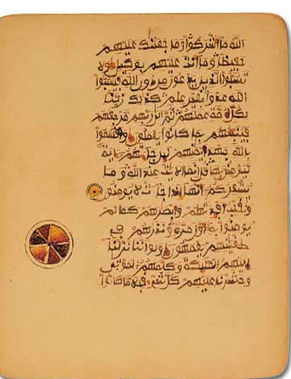 الله ما اشركوا وما جعلنك عليهم
حفيظا وما انت عليهم بوكيل ولا
تسبوا الذين يدعون من دون الله فيسبوا
الله عدوا بغير علم كذلك زينا
لكل امة عملهم ثم الى ربهم مرجعهم
فينبئهم بما كانوا يعملون واقسموا
بالله جهد ايمنهم لئن جاءتهم ءاية
ليؤمنن بها قل انما الايت عند الله وما
يشعركم انها اذا جاءت لا يؤمنون
ونقلب افئدتهم وابصرهم كما لم
يؤمنوا به اول مرة ونذرهم في
طغينهم يعمهون ولو اننا نزلنا
اليهم الملئكة وكلمهم الموتى
وحشرنا عليهم كل شيء قبلا ما كانوا